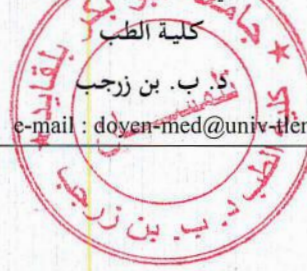 كلية الطب
د. ب. بن زرجب
e-mail : doyen-med@univ-tlem
جامعة أبو بكر بلقايد
تلمسان
كلية الطب د. ب. بن زرجب